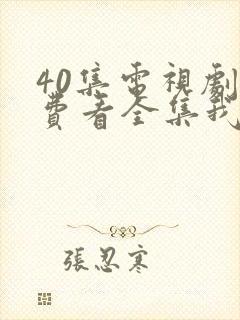 40集電視劇
費看全集我
張忍寒